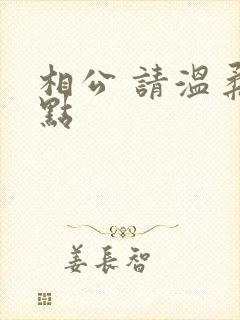 相公 請溫柔
點
姜長智